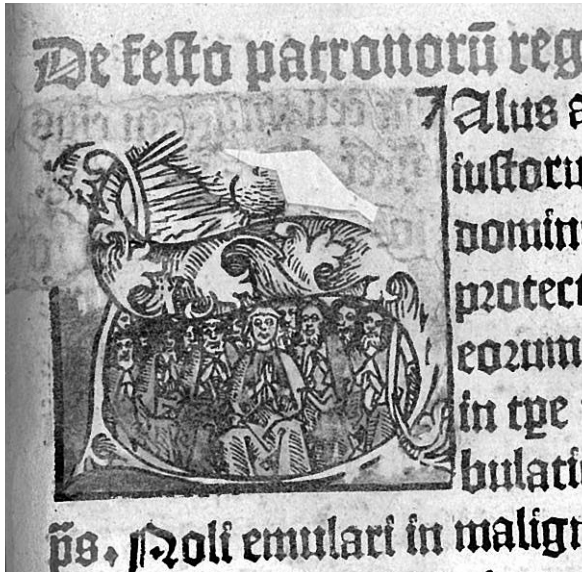 De festo patronorū reg
Alus a
iustoru
domin
protect
eorum
in tꝑe
bulati
p̄s. Noli emulari in malign